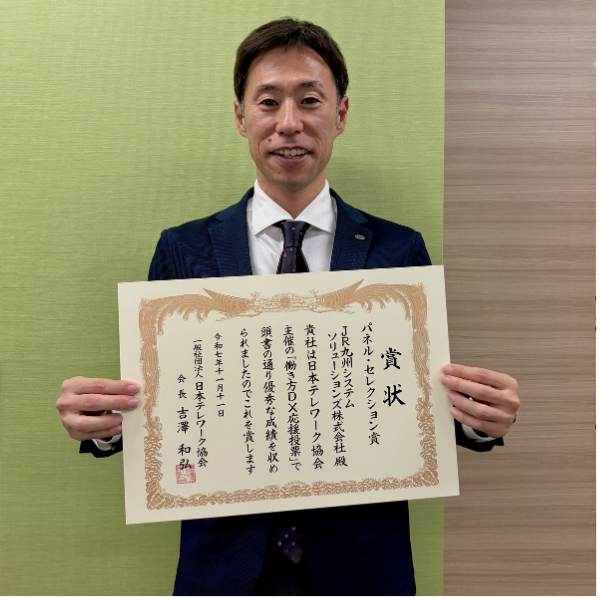 賞状
パネル・セレクション賞
JR九州システム
ソリューションズ株式会社 殿
貴社は日本テレワーク協会
主催の「働き方DX応援投票」で
頭書の通り優秀な成績を収め
られましたのでこれを賞します
令和七年十一月十一日
一般社団法人 日本テレワーク協会
会長 吉澤 和弘